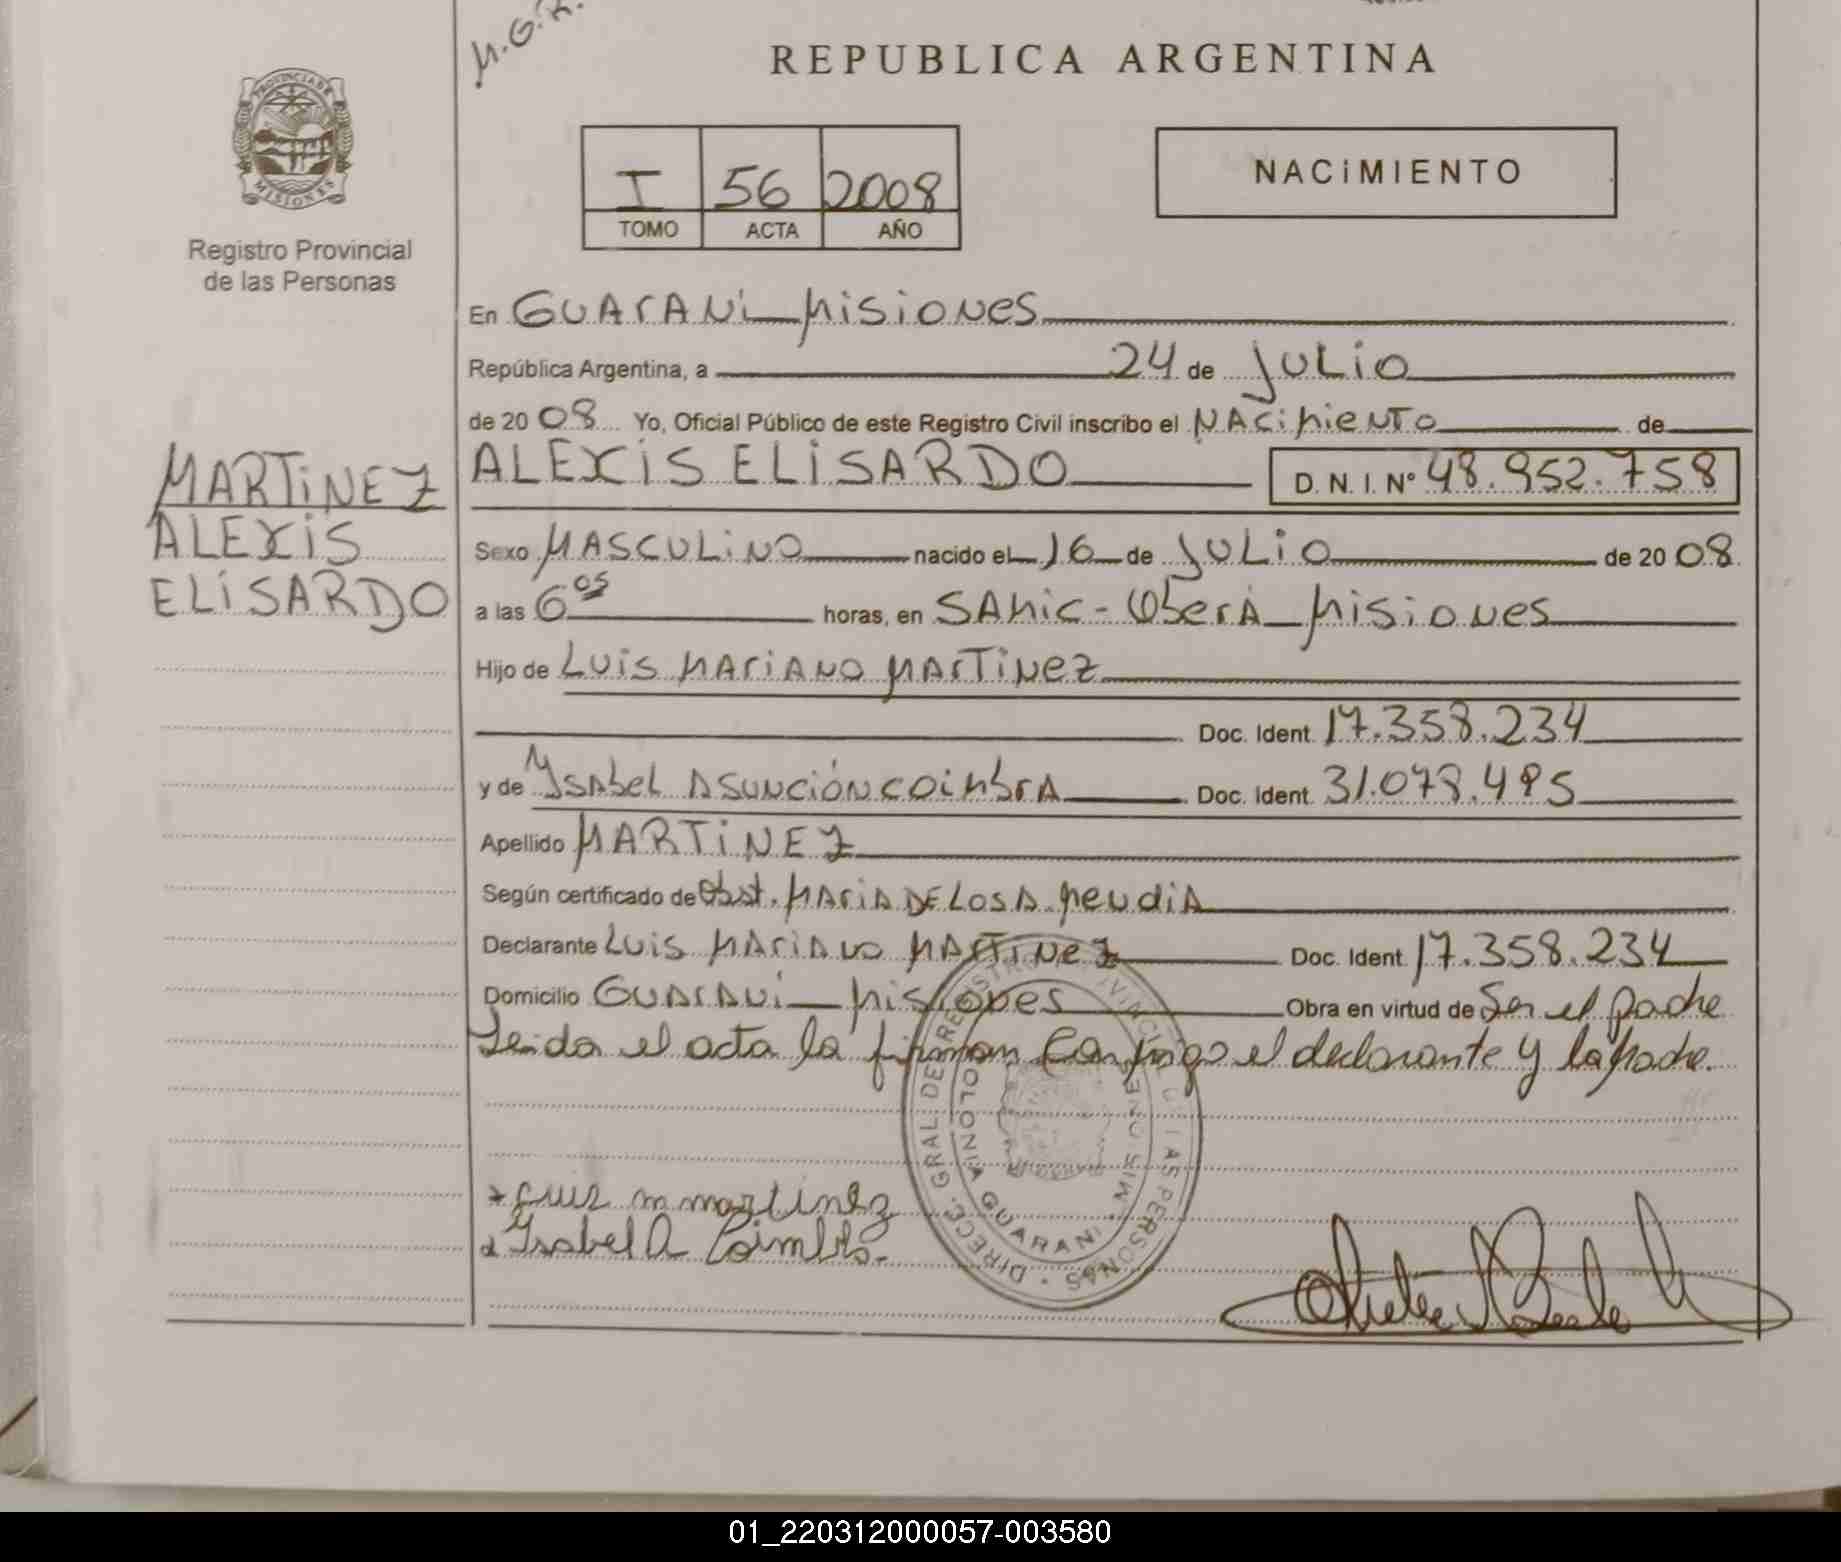 M.G.A.
REPUBLICA ARGENTINA
PROVINCIA DE
MISIONES
Registro Provincial
de las Personas
I 56 2008
TOMO ACTA AÑO
NACiMIENTO
En GUARANi Misiones
República Argentina, a 24 de JULio
de 20 08 Yo, Oficial Público de este Registro Civil inscribo el NACiMieNTo de
MARTiNEZ
ALEXiS
ELiSARDO
ALEXiS ELiSARDO D. N. I. Nº 48.952.758
Sexo MASCULiNO nacido el 16 de JULio de 20 08
a las 6 05 horas, en SAMic - OberA Misiones
Hijo de Luis MARiANO MARTiNez
Doc. Ident. 17.358.234
y de YsAbeL ASUNCióN CoiMbrA Doc. Ident. 31.078.495
Apellido MARTiNEZ
Según certificado de Obst. MARiA DE LOS A. MeNdiA
Declarante Luis MARiANO MARTiNez Doc. Ident. 17.358.234
Domicilio GUARANi Misiones Obra en virtud de Ser el padre
Leida el acta la firman conmigo el declarante y la madre.
DIRECC. GRAL. DE REGISTRO PROVINCIAL DE LAS PERSONAS
COLONIA GUARANI
Luis m martinez
Ysabel A Coimbra.
01_220312000057-003580